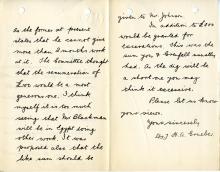 As the former at present
states that he cannot give
more than 2 months work
at it. The Committee thought
that the remuneration of
£100 would be a most
generous one. I think
myself it is too much
seeing that Mr Blackman
will be in Egypt doing
other work. It was
proposed also that the
like sum should be
given to Mr Johnson.
In addition to £200
would be granted for
excavations. This was the
sum you & Grenfell usually
had. As the dig will be
a short one you may
think it excessive.
Please let us know
your views.
Yours sincerely,